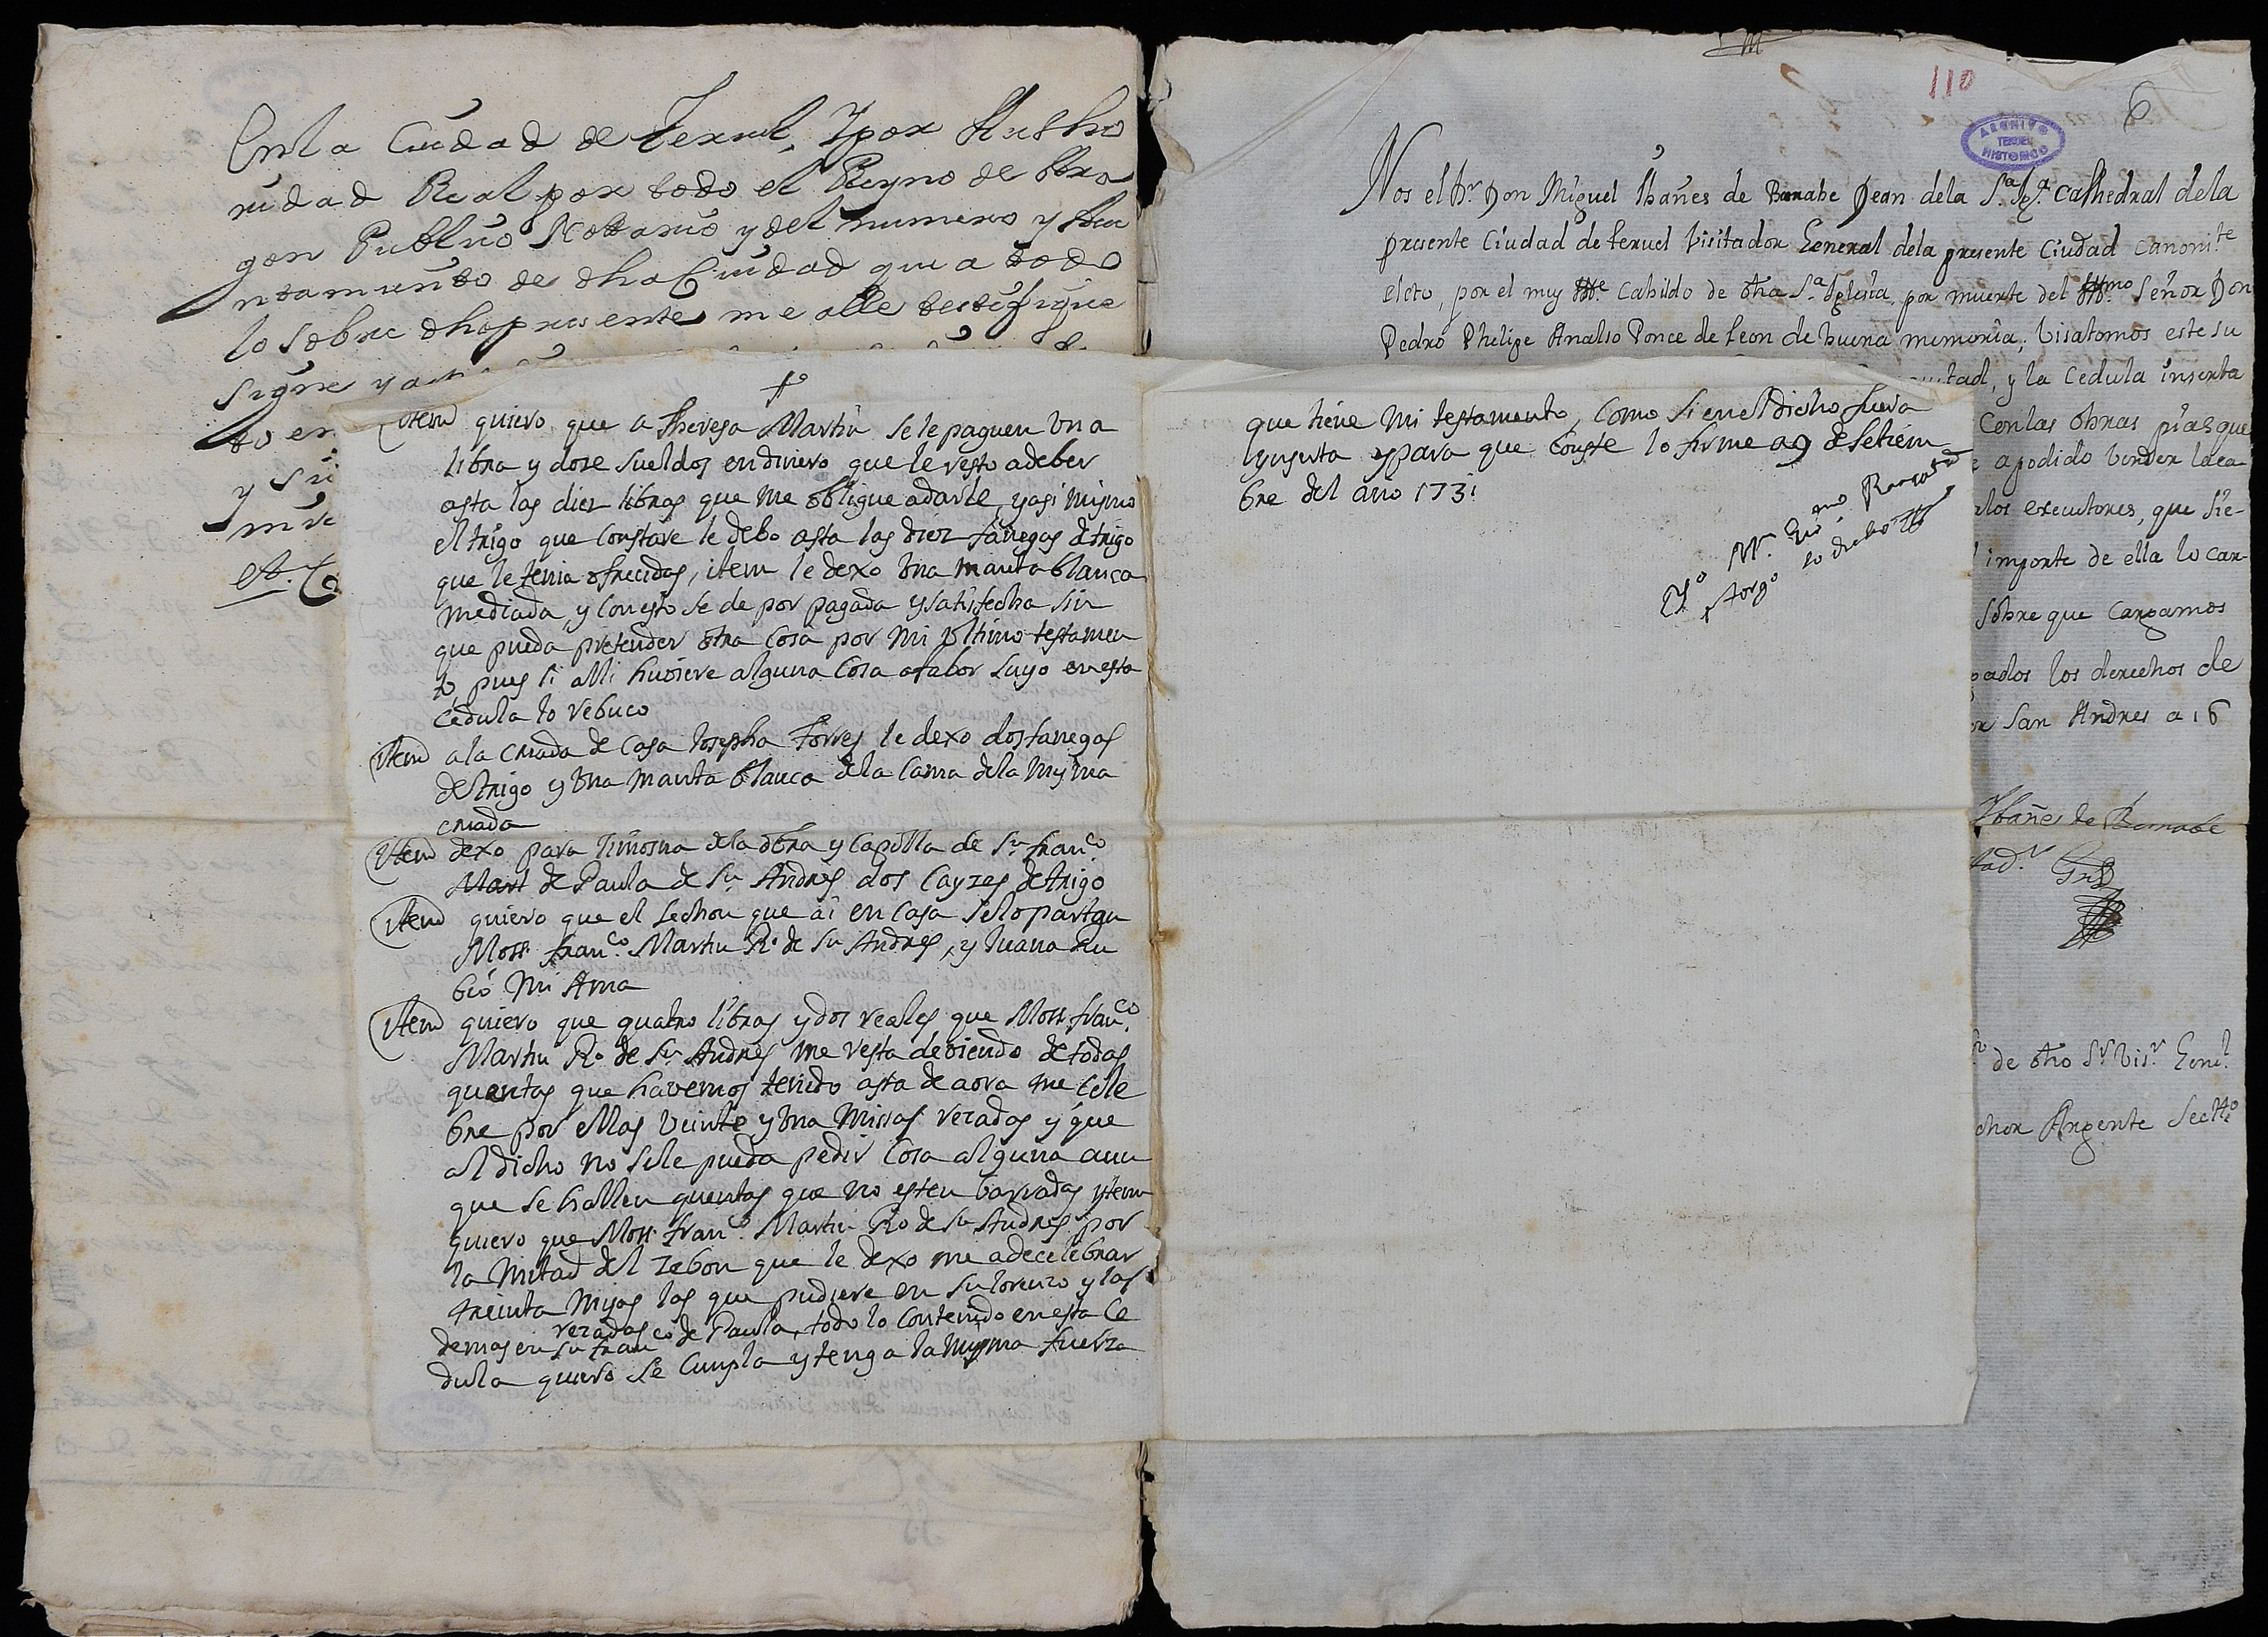 En la Ciudad de Teruel, Y por Autho
ridad Real por todo el Reyno de Ara
gon Publico Nottario y del numero y Aiu
ntamiento de dha Ciudad que a todo
lo sobre dho presente me alle testifique
signe y
to en
y
est.
Item quiero que a Theresa Martin se le paguen Una
libra y doze sueldos en dinero que le resto a deber
asta las diez libras que me obligue a darle, y asi mismo
el trigo que Constare le debo asta las diez fanegas de trigo
que le tenia ofrecidas, item le dexo Una manta blanca
mediada, y con esto se de por pagada y satisfecha sin
que pueda pretender otra Cosa por mi ultimo testamen
to, pues si alli huviere alguna Cosa a fabor suyo en esta
Cedula lo reboco
Item a la criada de Casa Josepha Torres le dexo dos fanegas
de trigo y Una manta blanca de la Cama de la misma
criada
Item dexo para limosna de la obra y Capilla de Sn. Franco.
Mart de Paula de Sn. Andres dos Cayzes de trigo
Item quiero que el lechon que ai en Casa se lo partan
Mosn. Franco. Martin Ro. de Sn Andres, y Juana Ru
bio mi Ama
Item quiero que quatro libras y dos reales que Mosn. Franco.
Martin Ro. de Sn. Andres me resta deviendo de todas
quentas que havemos tenido asta de aora me cele
bre por ellas Veinte y Una missas rezadas y que
al dicho no se le pueda pedir Cosa alguna aun
que se hallen quentas que no esten borradas ytem
quiero que Mosn. Franco. Martin Ro de Sn Andres por
la mitad del zebon que le dexo me a de celebrar
treinta misas las que pudiere en Sn Lorenzo y las
rezadas
demas en Sn Franco de Paula, todo lo contenido en esta Ce
dula quiero se Cumpla y tenga la misma fuerza
110
6
ARCHIVO
TERUEL
HISTORICO
Nos el Dr. Don Miguel Ibañes de Bernabe Dean de la Sta. Iga. Cathedral de la
presente Ciudad de Teruel Visitador General de la presente Ciudad Canonite.
electo, por el muy Ille. Cabildo de dha Sta. Iglesia, por muerte del Illmo. Señor Don
Pedro Phelipe Analso Ponce de Leon de buena memoria; Visitamos este su
y la Cedula inserta
Con las obras pias que
a podido vender la ca
los executores, que sie-
importe de ella lo car-
sobre que Cargamos
los derechos de
San Andres a 16
Ybañes de Bernabe
de dho Sr. Visr. Genl.
Argente Sectto.
que tiene mi testamento, Como si en el dicho fuera
ynserta y para que Conste lo firme a 9 de Setiem
bre del año 1731
Yo
otorgo lo dicho